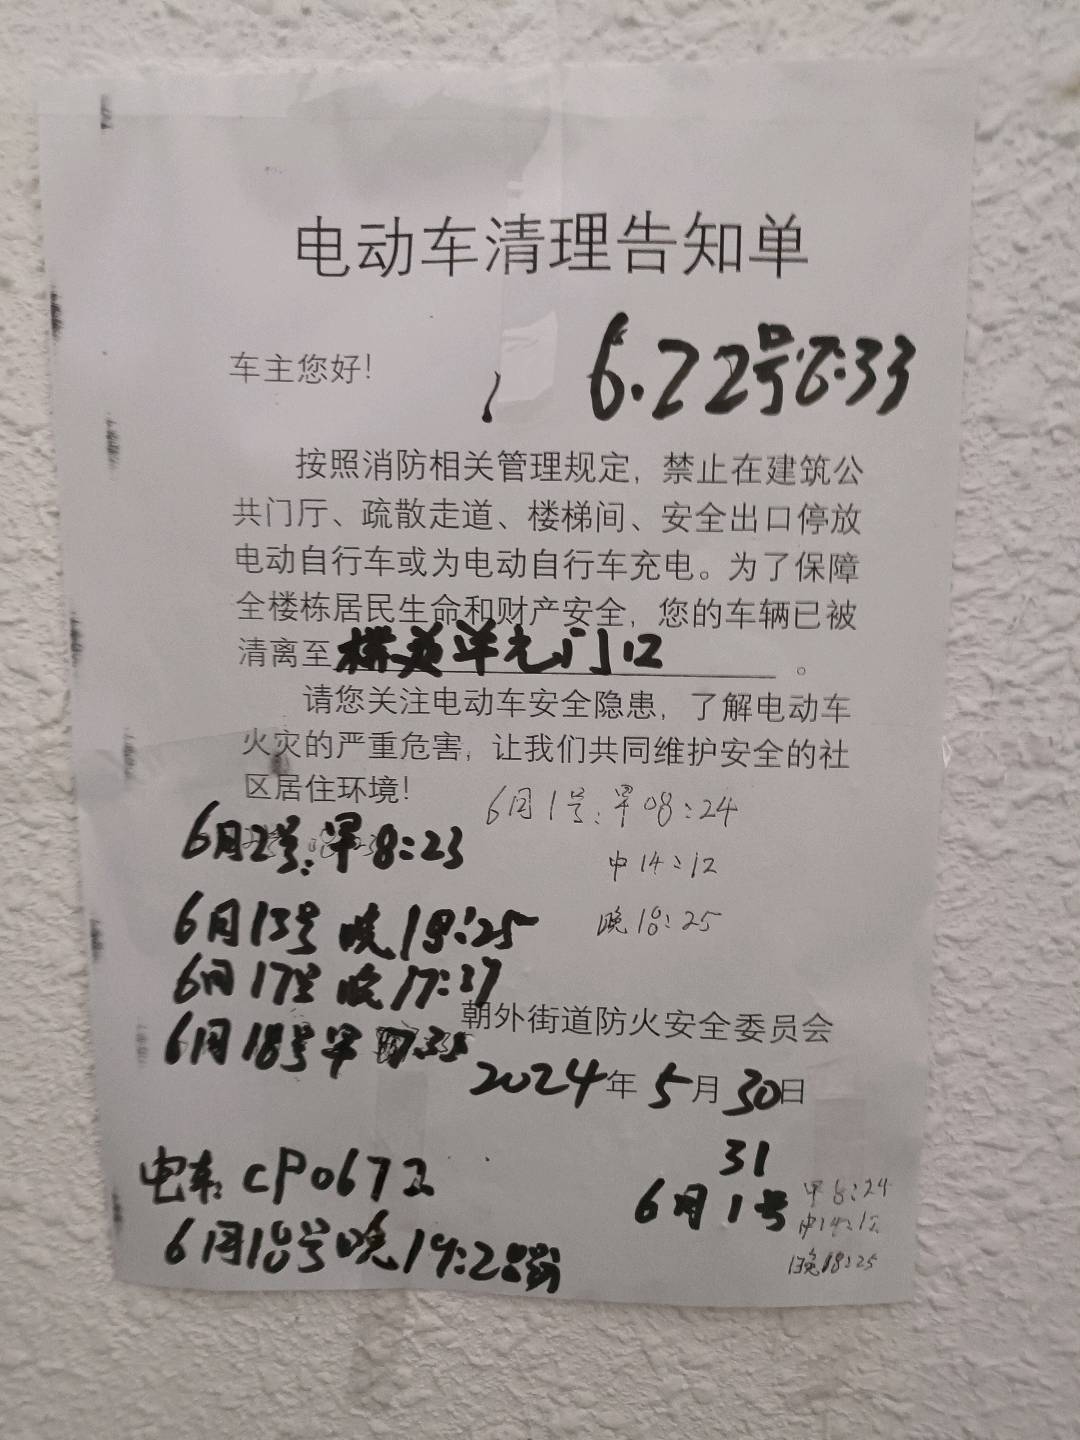 电动车清理告知单
车主您好!
6.22号8:33
按照消防相关管理规定，禁止在建筑公
共门厅、疏散走道、楼梯间、安全出口停放
电动自行车或为电动自行车充电。为了保障
全楼栋居民生命和财产安全，您的车辆已被
清离至 单元门口 。
请您关注电动车安全隐患，了解电动车
火灾的严重危害，让我们共同维护安全的社
区居住环境!
6月1号：早08:24
中14:12
晚18:25
6月2号：早8:23
6月13号 晚18:25
6月17号 晚17:37
6月18号早7:35
朝外街道防火安全委员会
2024年5月30日
31
6月1号
早8:24
中14:12
晚18:25
电车：CP0672
6月18号晚19:28